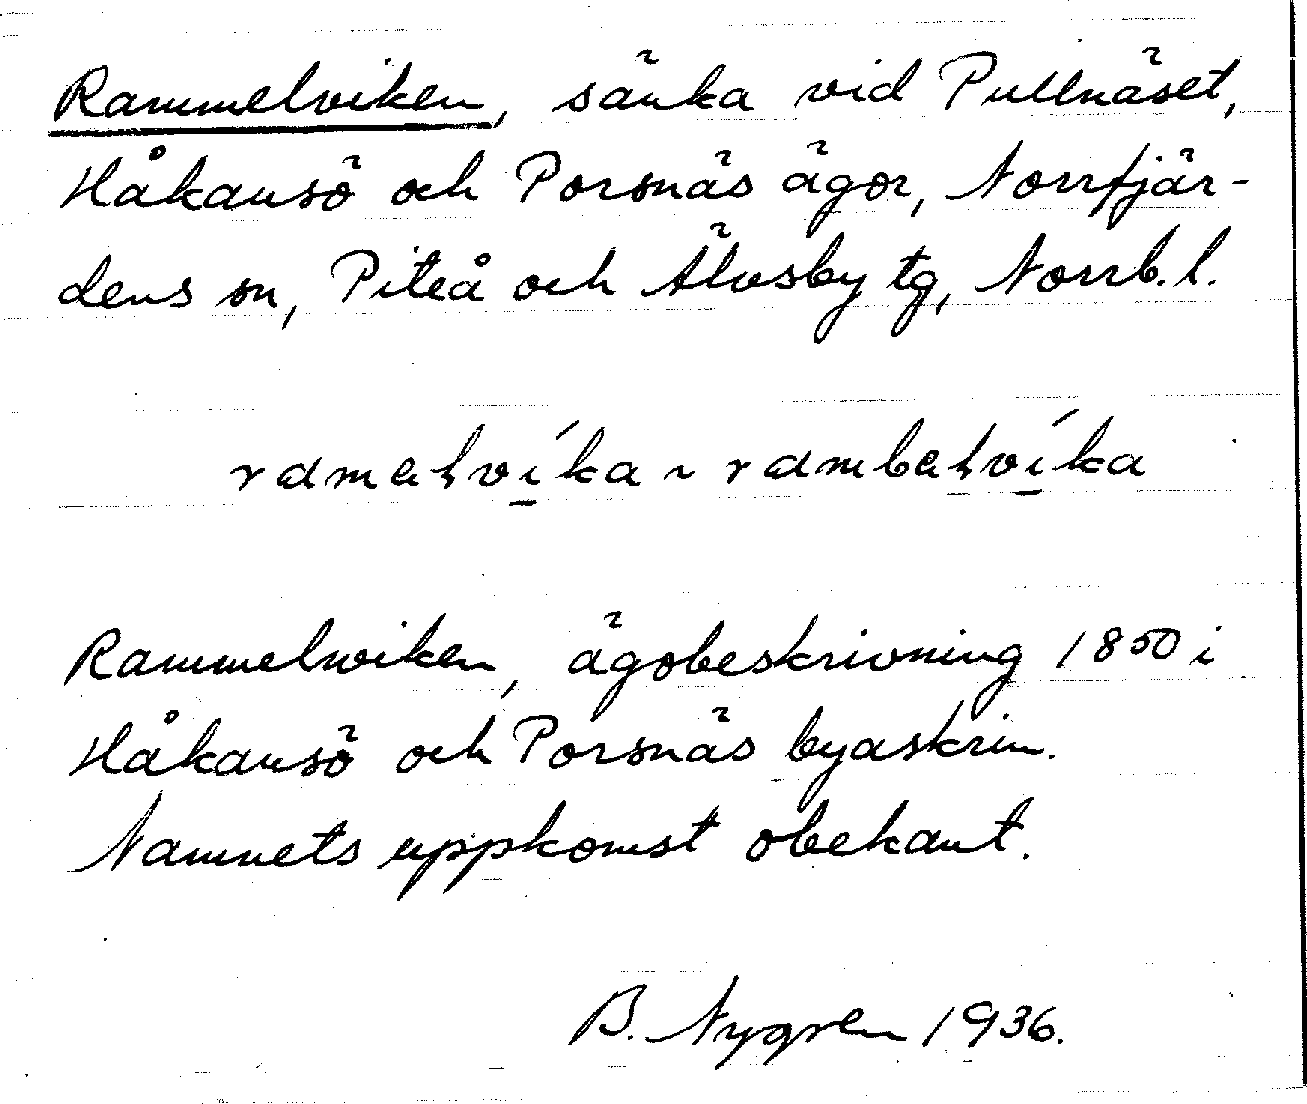 Rammelviken, sänka vid Pullnäset,
Håkansö och Porsnäs ägor, Norrfjär-
dens sn, Piteå och Älvsby tg, Norrb. l.
ramalví̱ka ~ rambalví̱ka
Rammelwiken, ägobeskrivning 1850 i
Håkansö och Porsnäs byaskrin.
Namnets uppkomst obekant.
B. Nygren 1936.